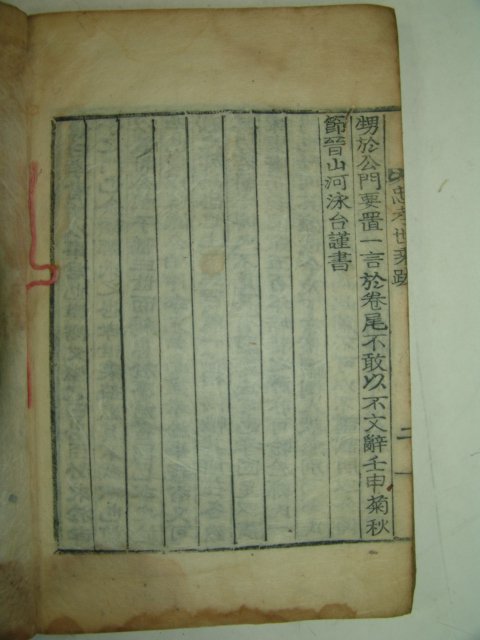 忠孝世乘跋
二
甥於公門要置一言於卷尾不敢以不文辭壬申菊秋
節晉山河泳台謹書